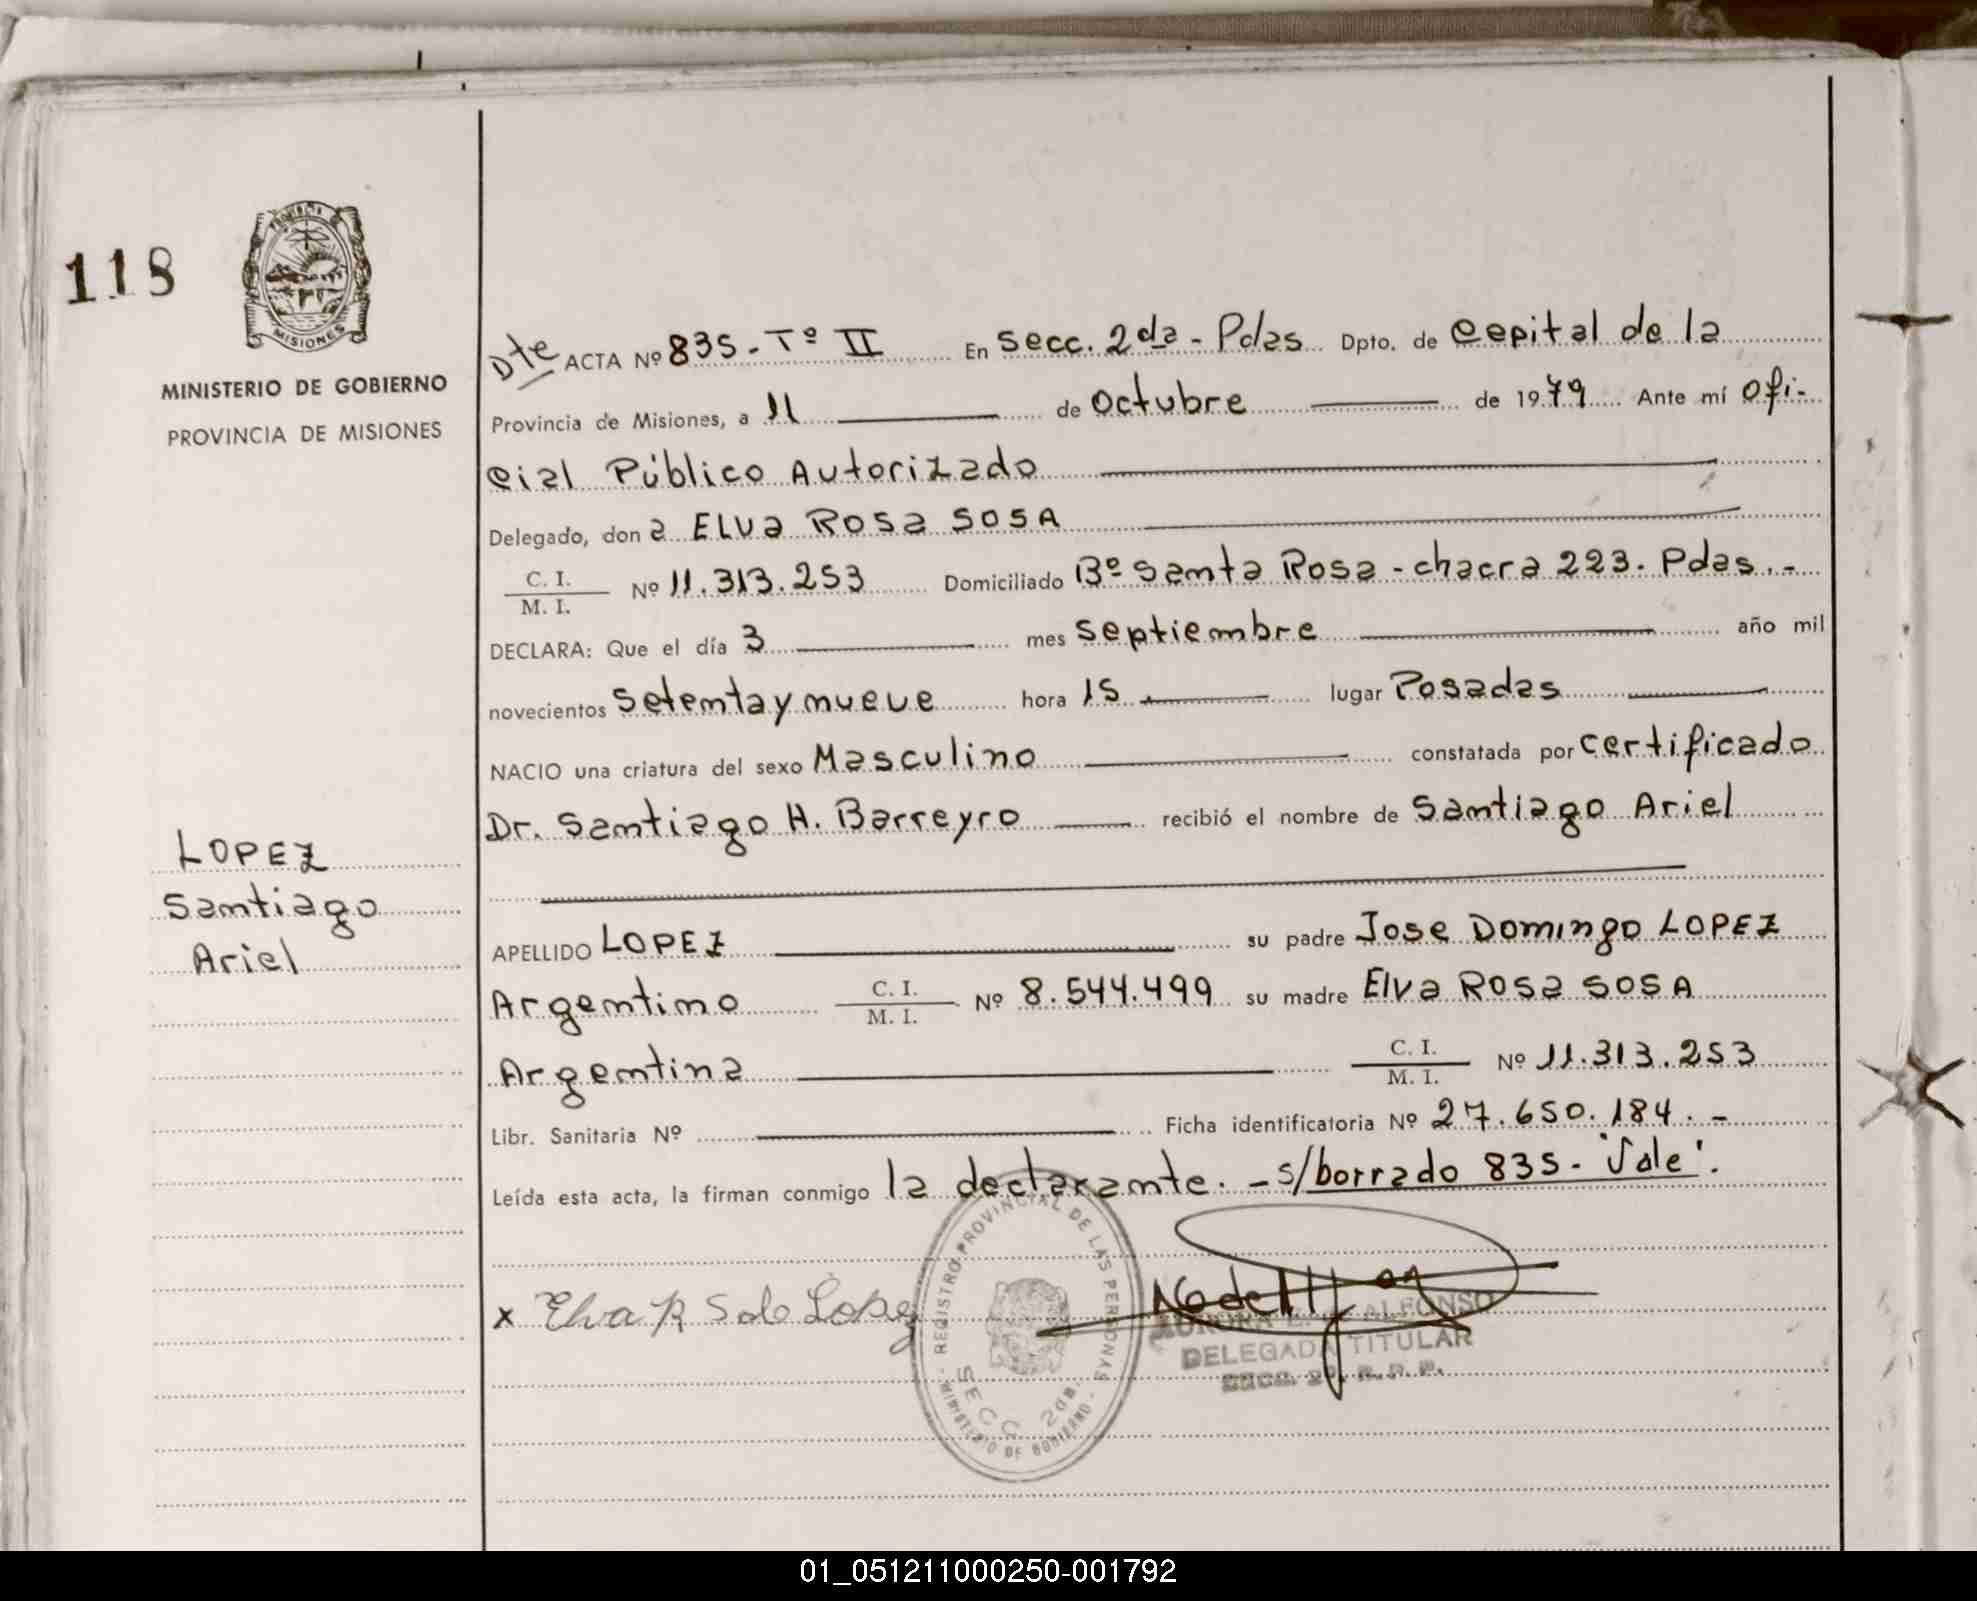 118
PROVINCIA
MISIONES
MINISTERIO DE GOBIERNO
PROVINCIA DE MISIONES
Dte ACTA Nº 835 - Tº II En Secc. 2da - Pdas Dpto. de Capital de la
Provincia de Misiones, a 11 de Octubre de 1979 Ante mí Ofi-
cial Público Autorizado
Delegado, don a ELVa ROSa SOSA
C. I. / M. I. Nº 11.313.253 Domiciliado Bº Santa Rosa - chacra 223. Pdas. -
DECLARA: Que el día 3 mes Septiembre año mil
novecientos Setenta y nueve hora 15 lugar Posadas
NACIO una criatura del sexo Masculino constatada por certificado
Dr. Santiago H. Barreyro recibió el nombre de Santiago Ariel
LOPEZ
Santiago
Ariel
APELLIDO LOPEZ su padre Jose Domingo LOPEZ
Argentino C. I. / M. I. Nº 8.544.499 su madre Elva Rosa SOSA
Argentina C. I. / M. I. Nº 11.313.253
Libr. Sanitaria Nº Ficha identificatoria Nº 27.650.184. -
Leída esta acta, la firman conmigo la declarante. - s/borrado 835 - 'Vale'.
x Elva R S de Lopez
REGISTRO PROVINCIAL DE LAS PERSONAS
MINISTERIO DE GOBIERNO
SECC 2da.
AURORA ALFONSO
DELEGADA TITULAR
SECC. 2da. R.P.P.
01_051211000250-001792